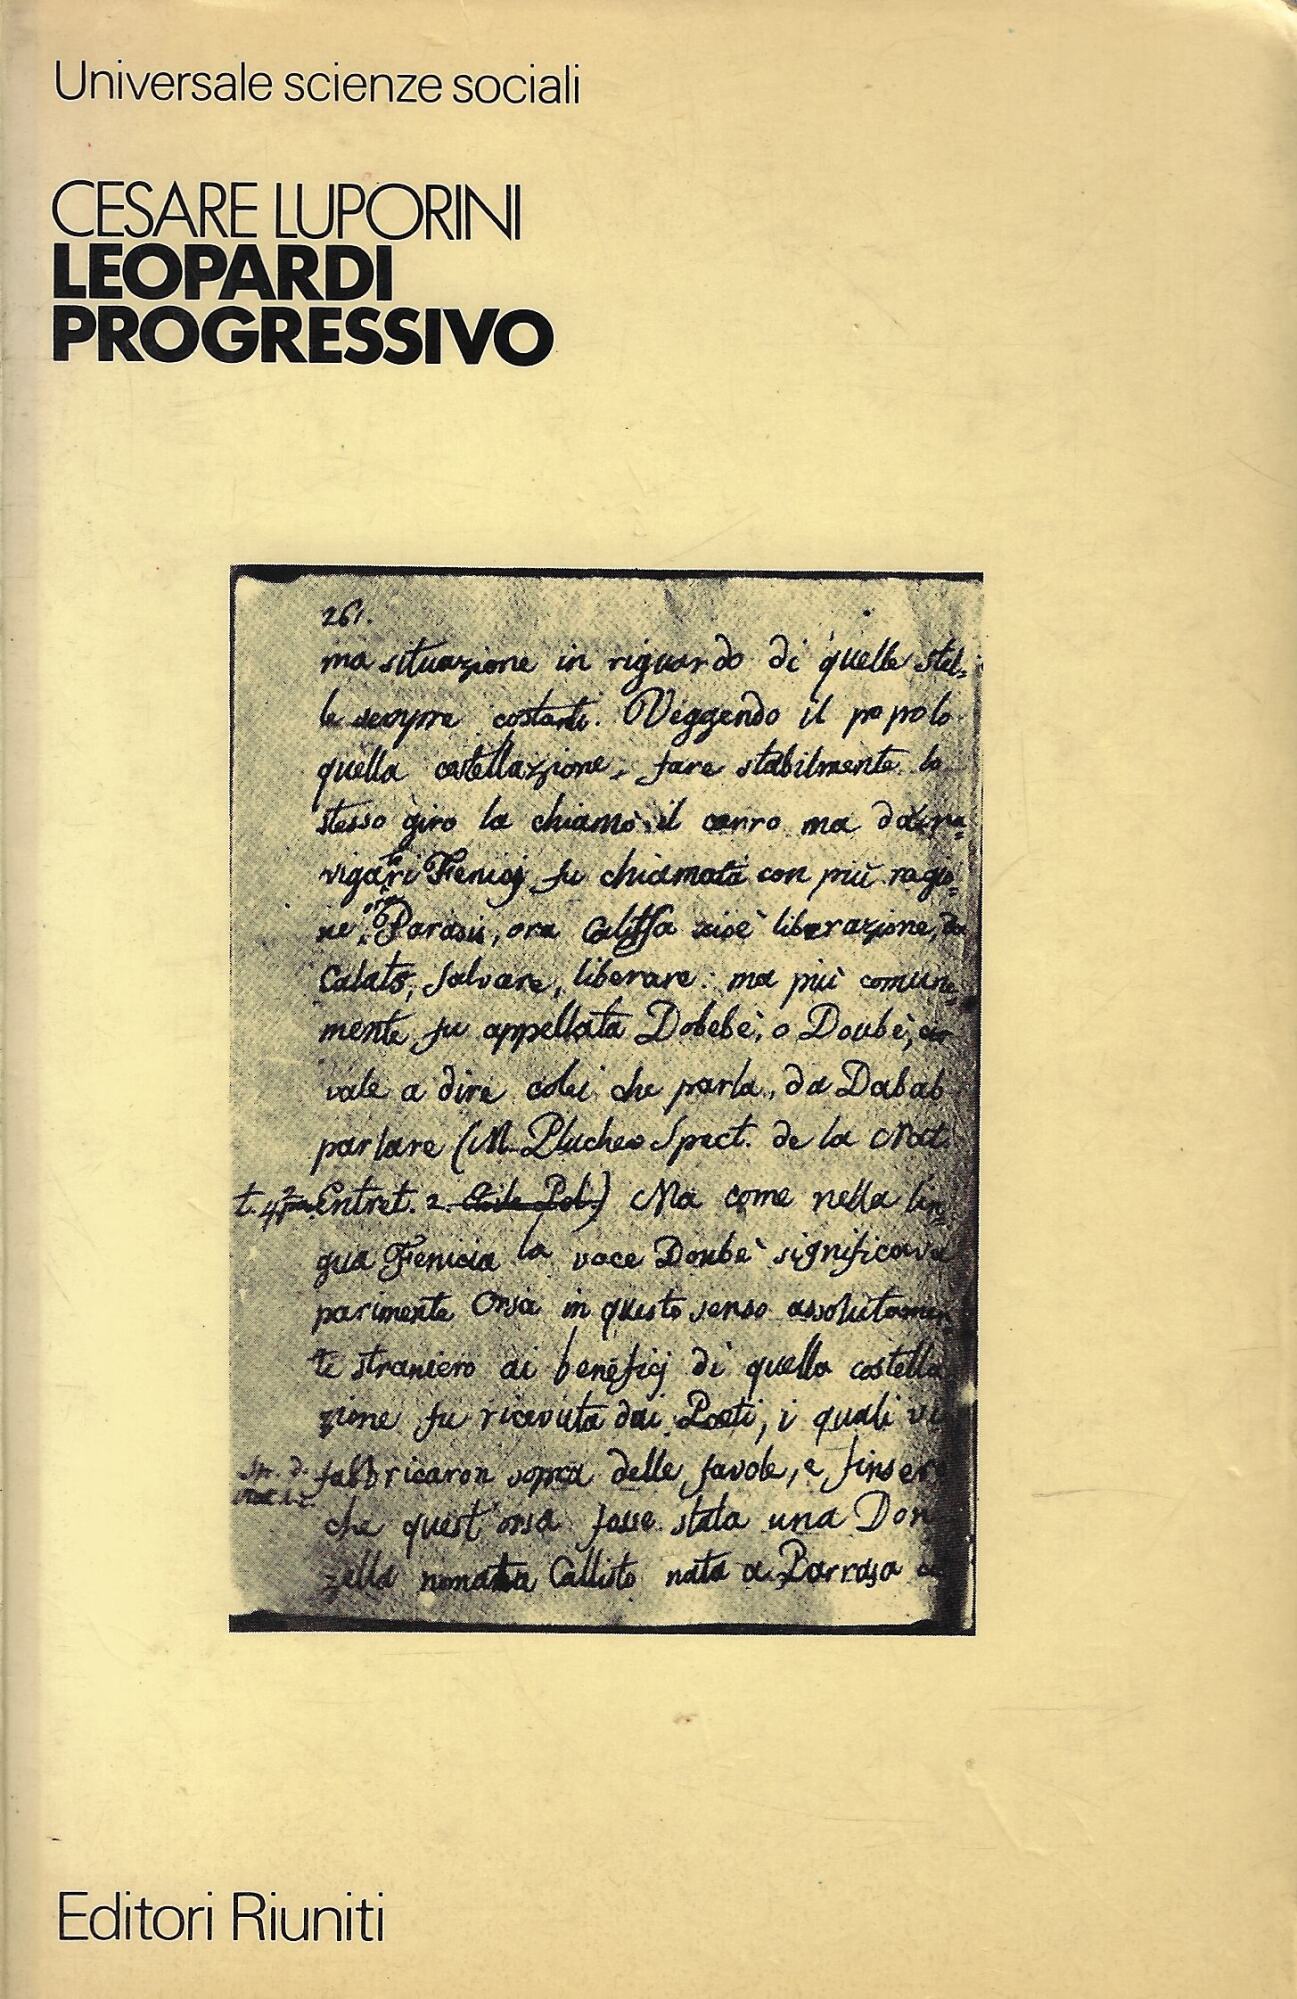 Universale scienze sociali
CESARE LUPORINI
LEOPARDI
PROGRESSIVO
261.
ma situazione in riguardo di quelle stel-
le sempre costanti. Veggendo il popolo
quella costellazione fare stabilmente lo
stesso giro la chiamò il carro ma da' na-
vigatori Fenicj fu chiamata con più ragio-
ne ora Parasis, ora Calitsa cioè liberazione, da
Calats, salvare, liberare: ma più comune-
mente fu appellata Dobebè, o Doubè, cio
vale a dire colei che parla, da Dabab
parlare (M. Pluche Spect. de la Nat.
t. 4 Entret. 2. ) Ma come nella lin-
gua Fenicia la voce Doubè significava
parimente Orsa in questo senso assolutamen-
te straniero ai benefizj di quella costella
zione fu ricevuta dai Poeti, i quali vi
fabbricaron sopra delle favole, e finsero
che quest'orsa fosse stata una Don
zella nomata Callisto nata a Parrasa
Editori Riuniti